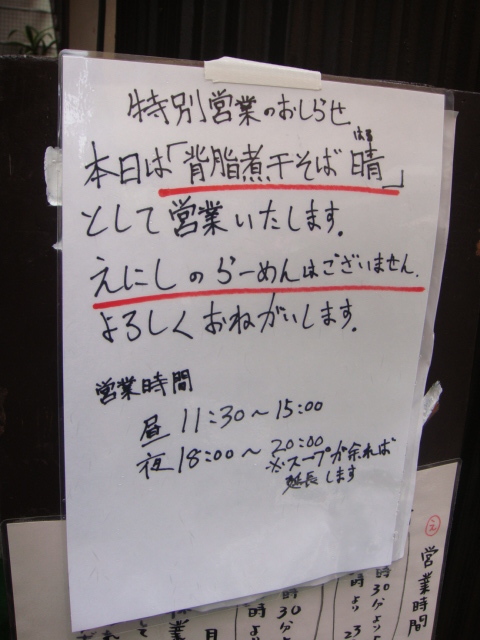 特別営業のおしらせ
はる
本日は「背脂煮干そば 晴」
として営業いたします。
えにしのらーめんはございません.
よろしくおねがいします。
営業時間
昼 11:30～15:00
夜 18:00～20:00
※スープが余れば
延長します
営業時間